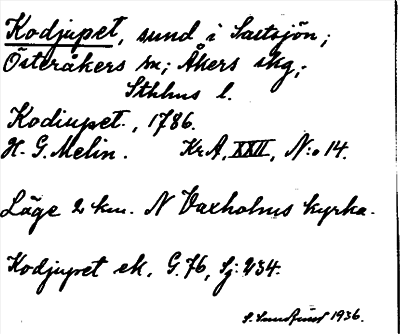 Kodjupet, sund i Saltsjön;
Österåkers sn; Åkers skg;
Sthlms l.
Kodiupet., 1786.
H. G. Melin. KrA, XXII, N:o 14.
Läge 2 km. N Vaxholms kyrka.
Kodjupet ek. G. 76, Sj: 234.
1936.